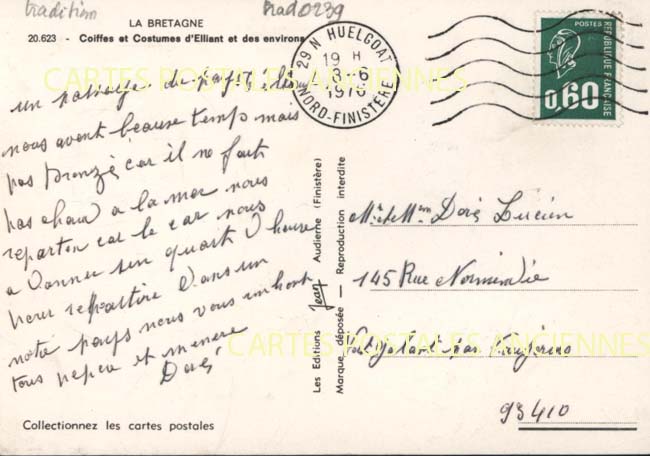 tradition
trad0239
LA BRETAGNE
20.623 - Coiffes et Costumes d'Elliant et des environs
29 N HUELGOAT
19 H
8-6
1976
NORD-FINISTÈRE
POSTES
RÉPUBLIQUE FRANÇAISE
0,60
CARTES POSTALES ANCIENNES
un passage du pays
nous avont beause temp mais
pas bronzé car il ne fait
pas chaud a la mer nous
reparton car le car nous
a donner un quart d heure
pour repartire dans un
notre pays nous vous
tous pepea et memere
Doré
Les Editions Jean Audierne (Finistère)
Marque déposée — Reproduction interdite
Mr et Mme Doré Lucien
145 Rue Normindie
par
93410
CARTES POSTALES ANCIENNES
Collectionnez les cartes postales